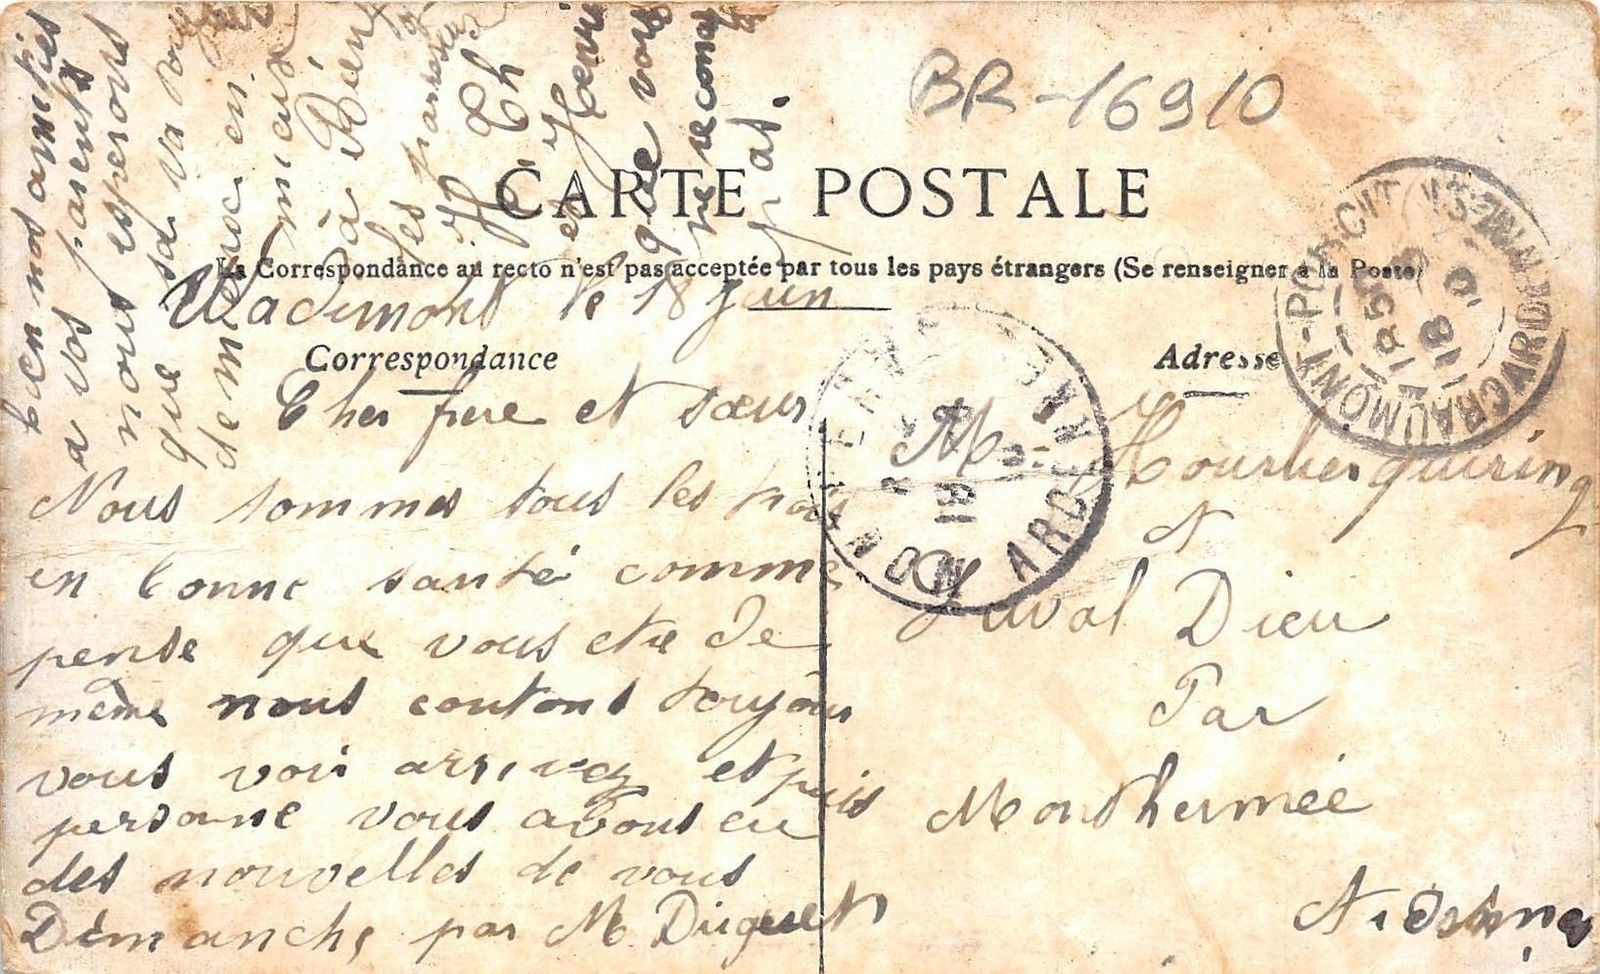 BR-16910
CARTE POSTALE
La Correspondance au recto n'est pas acceptée par tous les pays étrangers (Se renseigner à la Poste)
Correspondance
Adresse
Wadimont le 18 juin
Cher frere et sœur
Nous sommes tous les trois
en bonne santé comme
pense que vous etre de
même nous contons toujour
vous voir arrivez et puis
personne vous avons eu
des nouvelles de vous
Dimanche par M Duquet
bien nos amities
a vos parents
nous esperons
que sa va
de mieux en
mieux
à Bien
les
H Ch
et Henri
que vous
ne recone
pas.
M
a
Laval Dieu
Par
Monthermée
Ardennes
CHAUMONT-PORCIEN
ARDENNES
12 50
18
MONTHERMÉ
ARDENNES
19